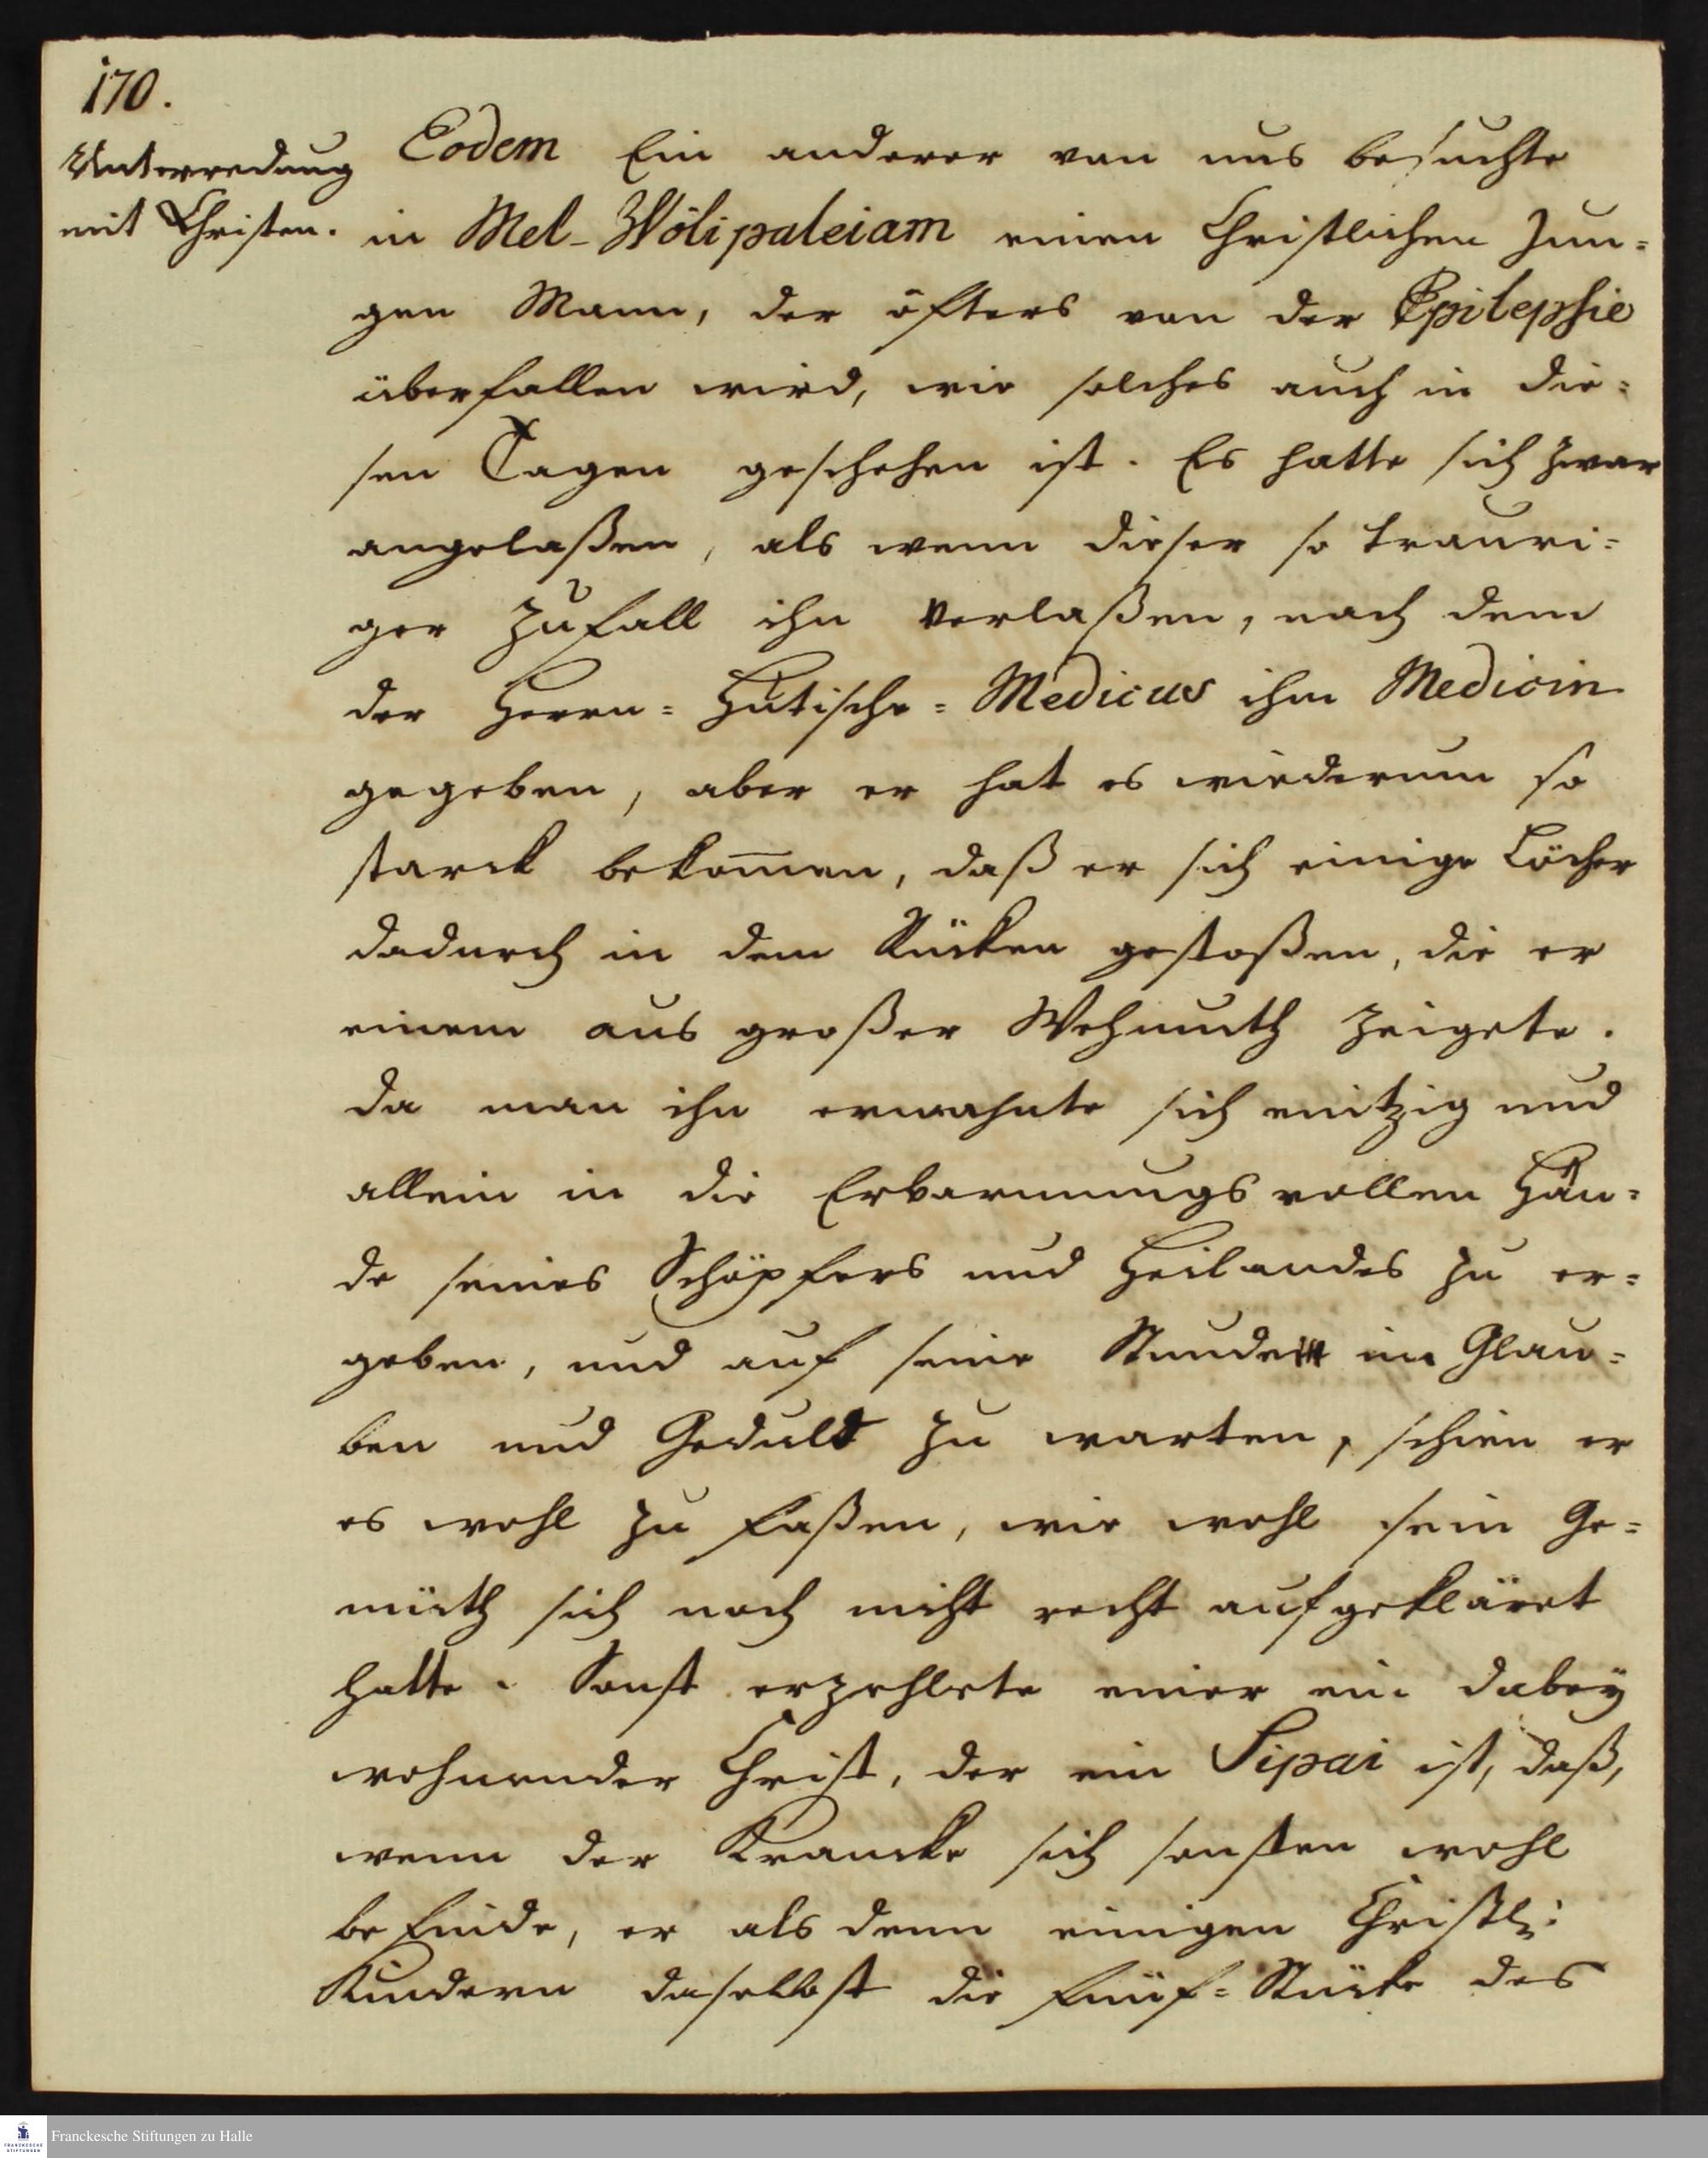 170.
Unterredung
mit Christen.
Eodem Ein anderer von uns besuchte
in Mel-Wölipaleiam einen Christlichen Jun=
gen Mann, der öfters von der Epilepsie
überfallen wird, wie solches auch in die=
sen Tagen geschehen ist. Es hatte sich zwar
angelaßen, als wenn dieser so trauri=
ger Zufall ihn verlaßen, nach dem
der Herrn=Hutische=Medicus ihm Medicin
gegeben, aber er hat es wiederum so
starck bekom̄en, daß er sich einige Löcher
dadurch in dem Rücken gestoßen, die er
einem aus großer Wehmuth zeigete.
Da man ihn ermahnte sich eintzig und
allein in die Erbarmungs vollen Hän=
de seines Schöpfers und Heilandes zu er=
geben, und auf seine Stunde im Glau=
ben und Geduld zu warten, schien er
es wohl zu faßen, wie wohl sein Ge=
müth sich noch nicht recht aufgekläret
hatte. Sonst erzehlete einer ein dabey
wohnender Christ, der ein Sipai ist, daß,
wenn der Krancke sich sonsten wohl
befinde, er als denn einigen Christl:
Kindern daselbst die Fünf=Stücke des
Franckesche Stiftungen zu Halle